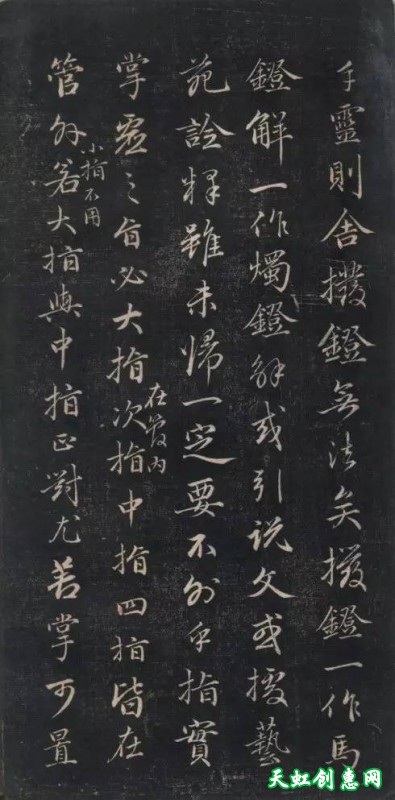 手靈則舍撥鐙無法矣撥鐙一作馬
鐙解一作燭鐙解或引説文或援藝
苑詮釋雖未歸一定要不外乎指實
在管内
掌虛之旨必大指次指中指四指皆在
小指不用
管外若大指與中指正對尤掌可置
天虹创惠网